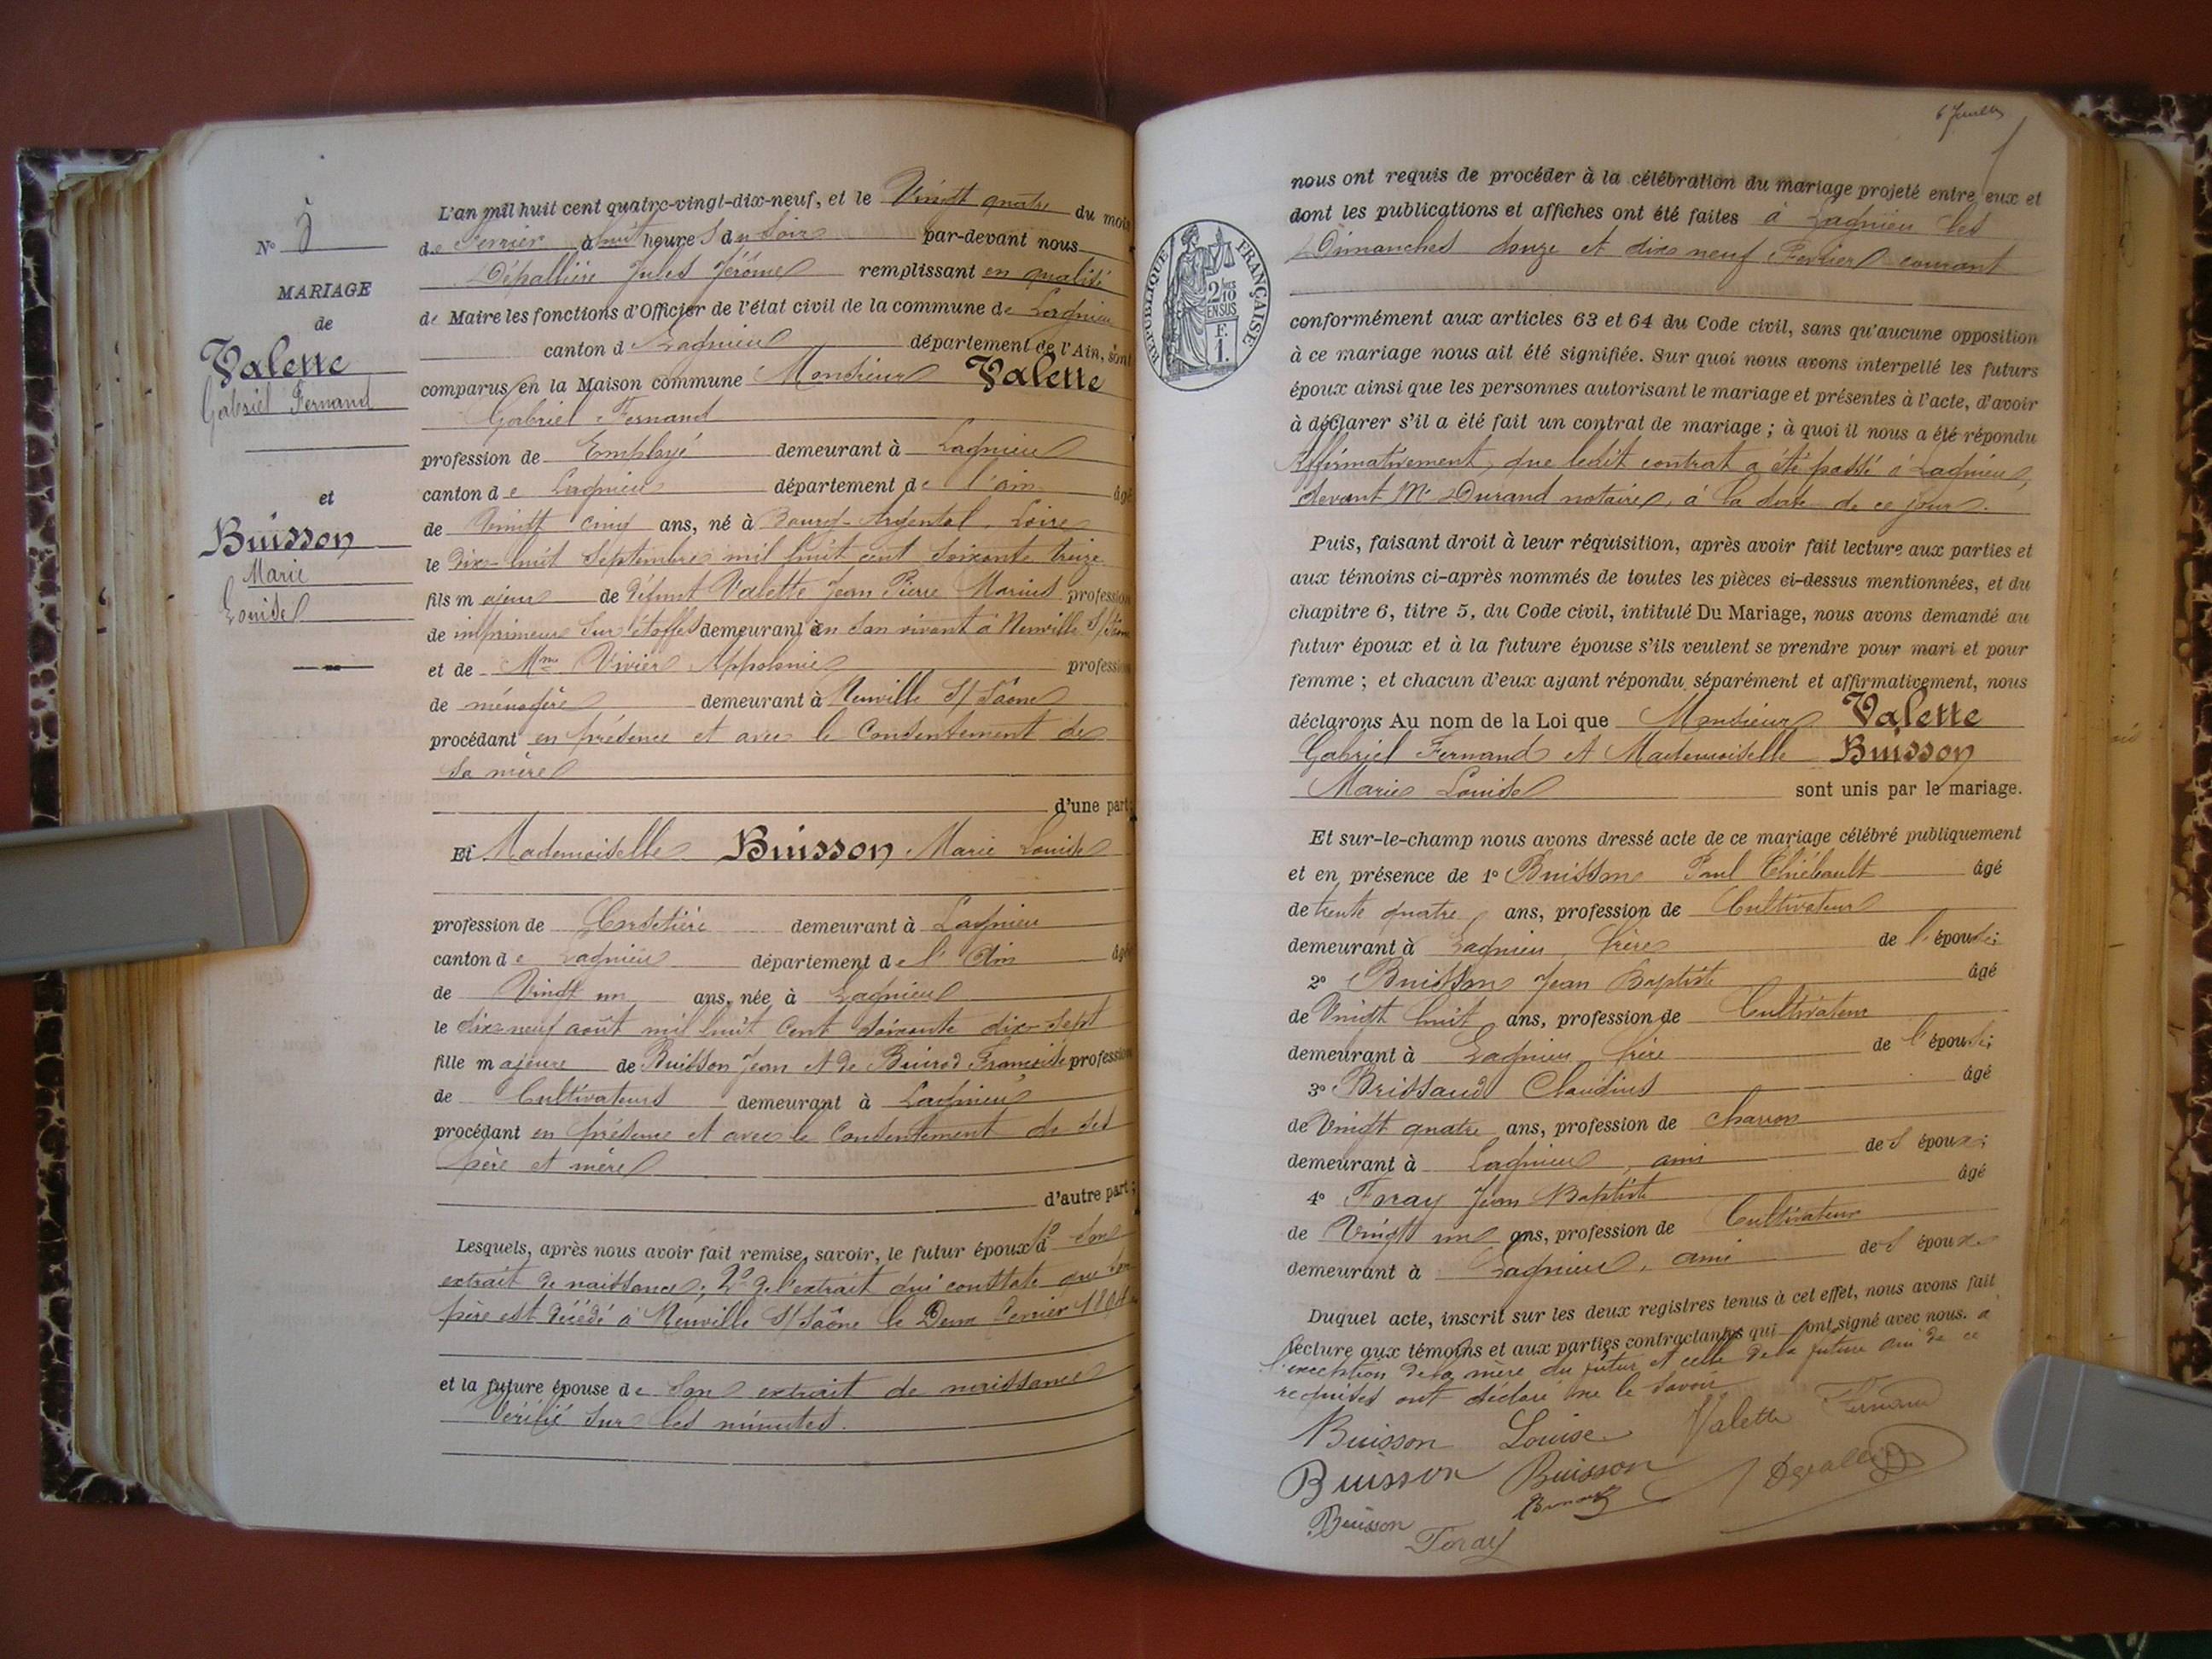 N° 5
MARIAGE
de
Valette
Gabriel Fernand
et
Buisson
Marie
Louise
L'an mil huit cent quatre-vingt-dix-neuf, et le Vingt quatre du mois
de Fevrier à huit heures du Soir par-devant nous
Dépallière Jules Jérôme remplissant en qualité
de Maire les fonctions d'Officier de l'état civil de la commune de Lagnieu
canton d Lagnieu département de l'Ain, sont
comparus en la Maison commune Monsieur Valette
Gabriel Fernand
profession de Employé demeurant à Lagnieu
canton de Lagnieu département de l'ain âgé
de Vingt cinq ans, né à Bourg-Argental, Loire
le Dix-huit Septembre mil huit cent soixante treize
fils majeur de défunt Valette Jean Pierre Marius profession
de imprimeur sur étoffes demeurant en son vivant à Neuville S/Saône
et de Mme Vivier Appolonie profession
de ménagère demeurant à Neuville S/Saône
procédant en présence et avec le Consentement de
sa mère
d'une part;
Et Mademoiselle Buisson Marie Louise
profession de Corsetière demeurant à Lagnieu
canton de Lagnieu département de l'Ain âgée
de Vingt un ans, née à Lagnieu
le dix-neuf août mil huit Cent soixante dix-sept
fille majeure de Buisson Jean et de Buirod Françoise profession
de Cultivateurs demeurant à Lagnieu
procédant en présence et avec le Consentement de ses
père et mère
d'autre part;
Lesquels, après nous avoir fait remise, savoir, le futur époux 1° d son
extrait de naissance; 2° de l'extrait qui constate que son
père est décédé à Neuville S/Saône le Deux février
et la future épouse de son extrait de naissance
Vérifié sur les minutes.
6 Juillet
nous ont requis de procéder à la célébration du mariage projeté entre eux et
dont les publications et affiches ont été faites à Lagnieu les
Dimanches douze et dix neuf Février courant
RÉPUBLIQUE FRANÇAISE
2/10
EN SUS
F.
1.
conformément aux articles 63 et 64 du Code civil, sans qu'aucune opposition
à ce mariage nous ait été signifiée. Sur quoi nous avons interpellé les futurs
époux ainsi que les personnes autorisant le mariage et présentes à l'acte, d'avoir
à déclarer s'il a été fait un contrat de mariage ; à quoi il nous a été répondu
Affirmativement, que ledit contrat a été passé à Lagnieu,
devant Me Durand notaire, à la date de ce jour.
Puis, faisant droit à leur réquisition, après avoir fait lecture aux parties et
aux témoins ci-après nommés de toutes les pièces ci-dessus mentionnées, et du
chapitre 6, titre 5, du Code civil, intitulé Du Mariage, nous avons demandé au
futur époux et à la future épouse s'ils veulent se prendre pour mari et pour
femme ; et chacun d'eux ayant répondu séparément et affirmativement, nous
déclarons Au nom de la Loi que Monsieur Valette
Gabriel Fernand et Mademoiselle Buisson
Marie Louise sont unis par le mariage.
Et sur-le-champ nous avons dressé acte de ce mariage célébré publiquement
et en présence de 1° Buisson Paul Thiébault âgé
de trente quatre ans, profession de Cultivateur
demeurant à Lagnieu, frère de l'épouse;
2° Buisson Jean Baptiste âgé
de Vingt huit ans, profession de Cultivateur
demeurant à Lagnieu frère de l'épouse;
3° Brissaud Claudius âgé
de Vingt quatre ans, profession de charron
demeurant à Lagnieu, ami des époux;
4° Foray Jean Baptiste âgé
de Vingt un ans, profession de Cultivateur
demeurant à Lagnieu, ami des époux
Duquel acte, inscrit sur les deux registres tenus à cet effet, nous avons fait
lecture aux témoins et aux parties contractantes qui ont signé avec nous. à
l'exception de la mère du futur et celle de la future qui de ce
requises ont déclaré ne le savoir
Buisson Louise Valette Fernand
Buisson Buisson
Buisson
Foray